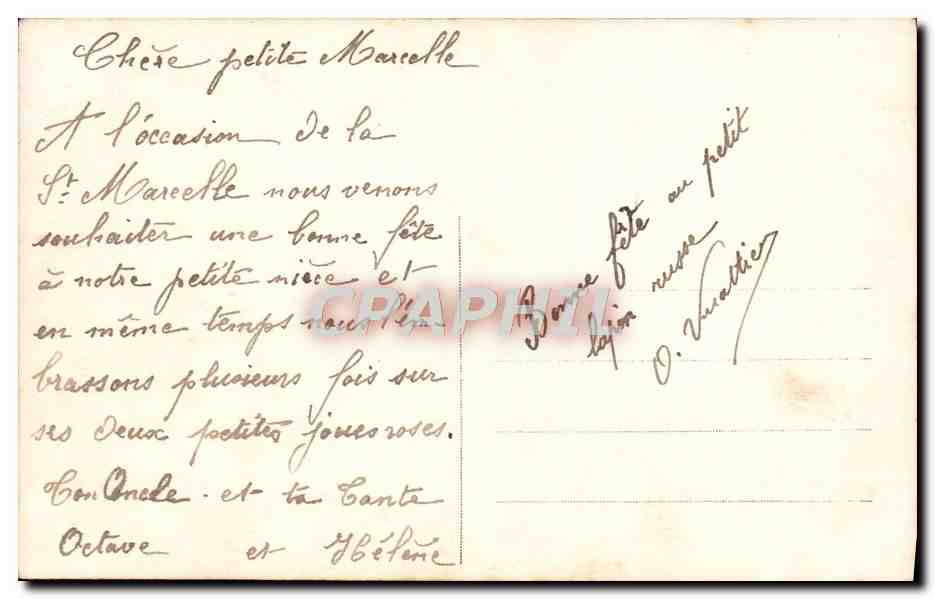 Chère petite Marcelle
A l'occasion de la
St Marcelle nous venons
souhaiter une bonne fête
à notre petite nièce et
en même temps nous l'em
brassons plusieurs fois sur
ses deux petites joues roses.
Ton Oncle et ta Tante
Octave et Hélène
Bonne fête au petit
lapin russe
O.
CPARHIL